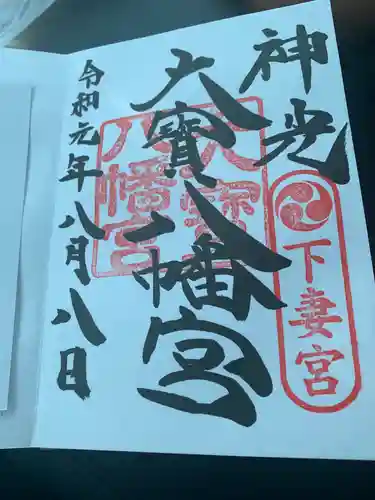 神光
下妻宮
大寳八幡宮
大寳八幡宮
令和元年八月八日